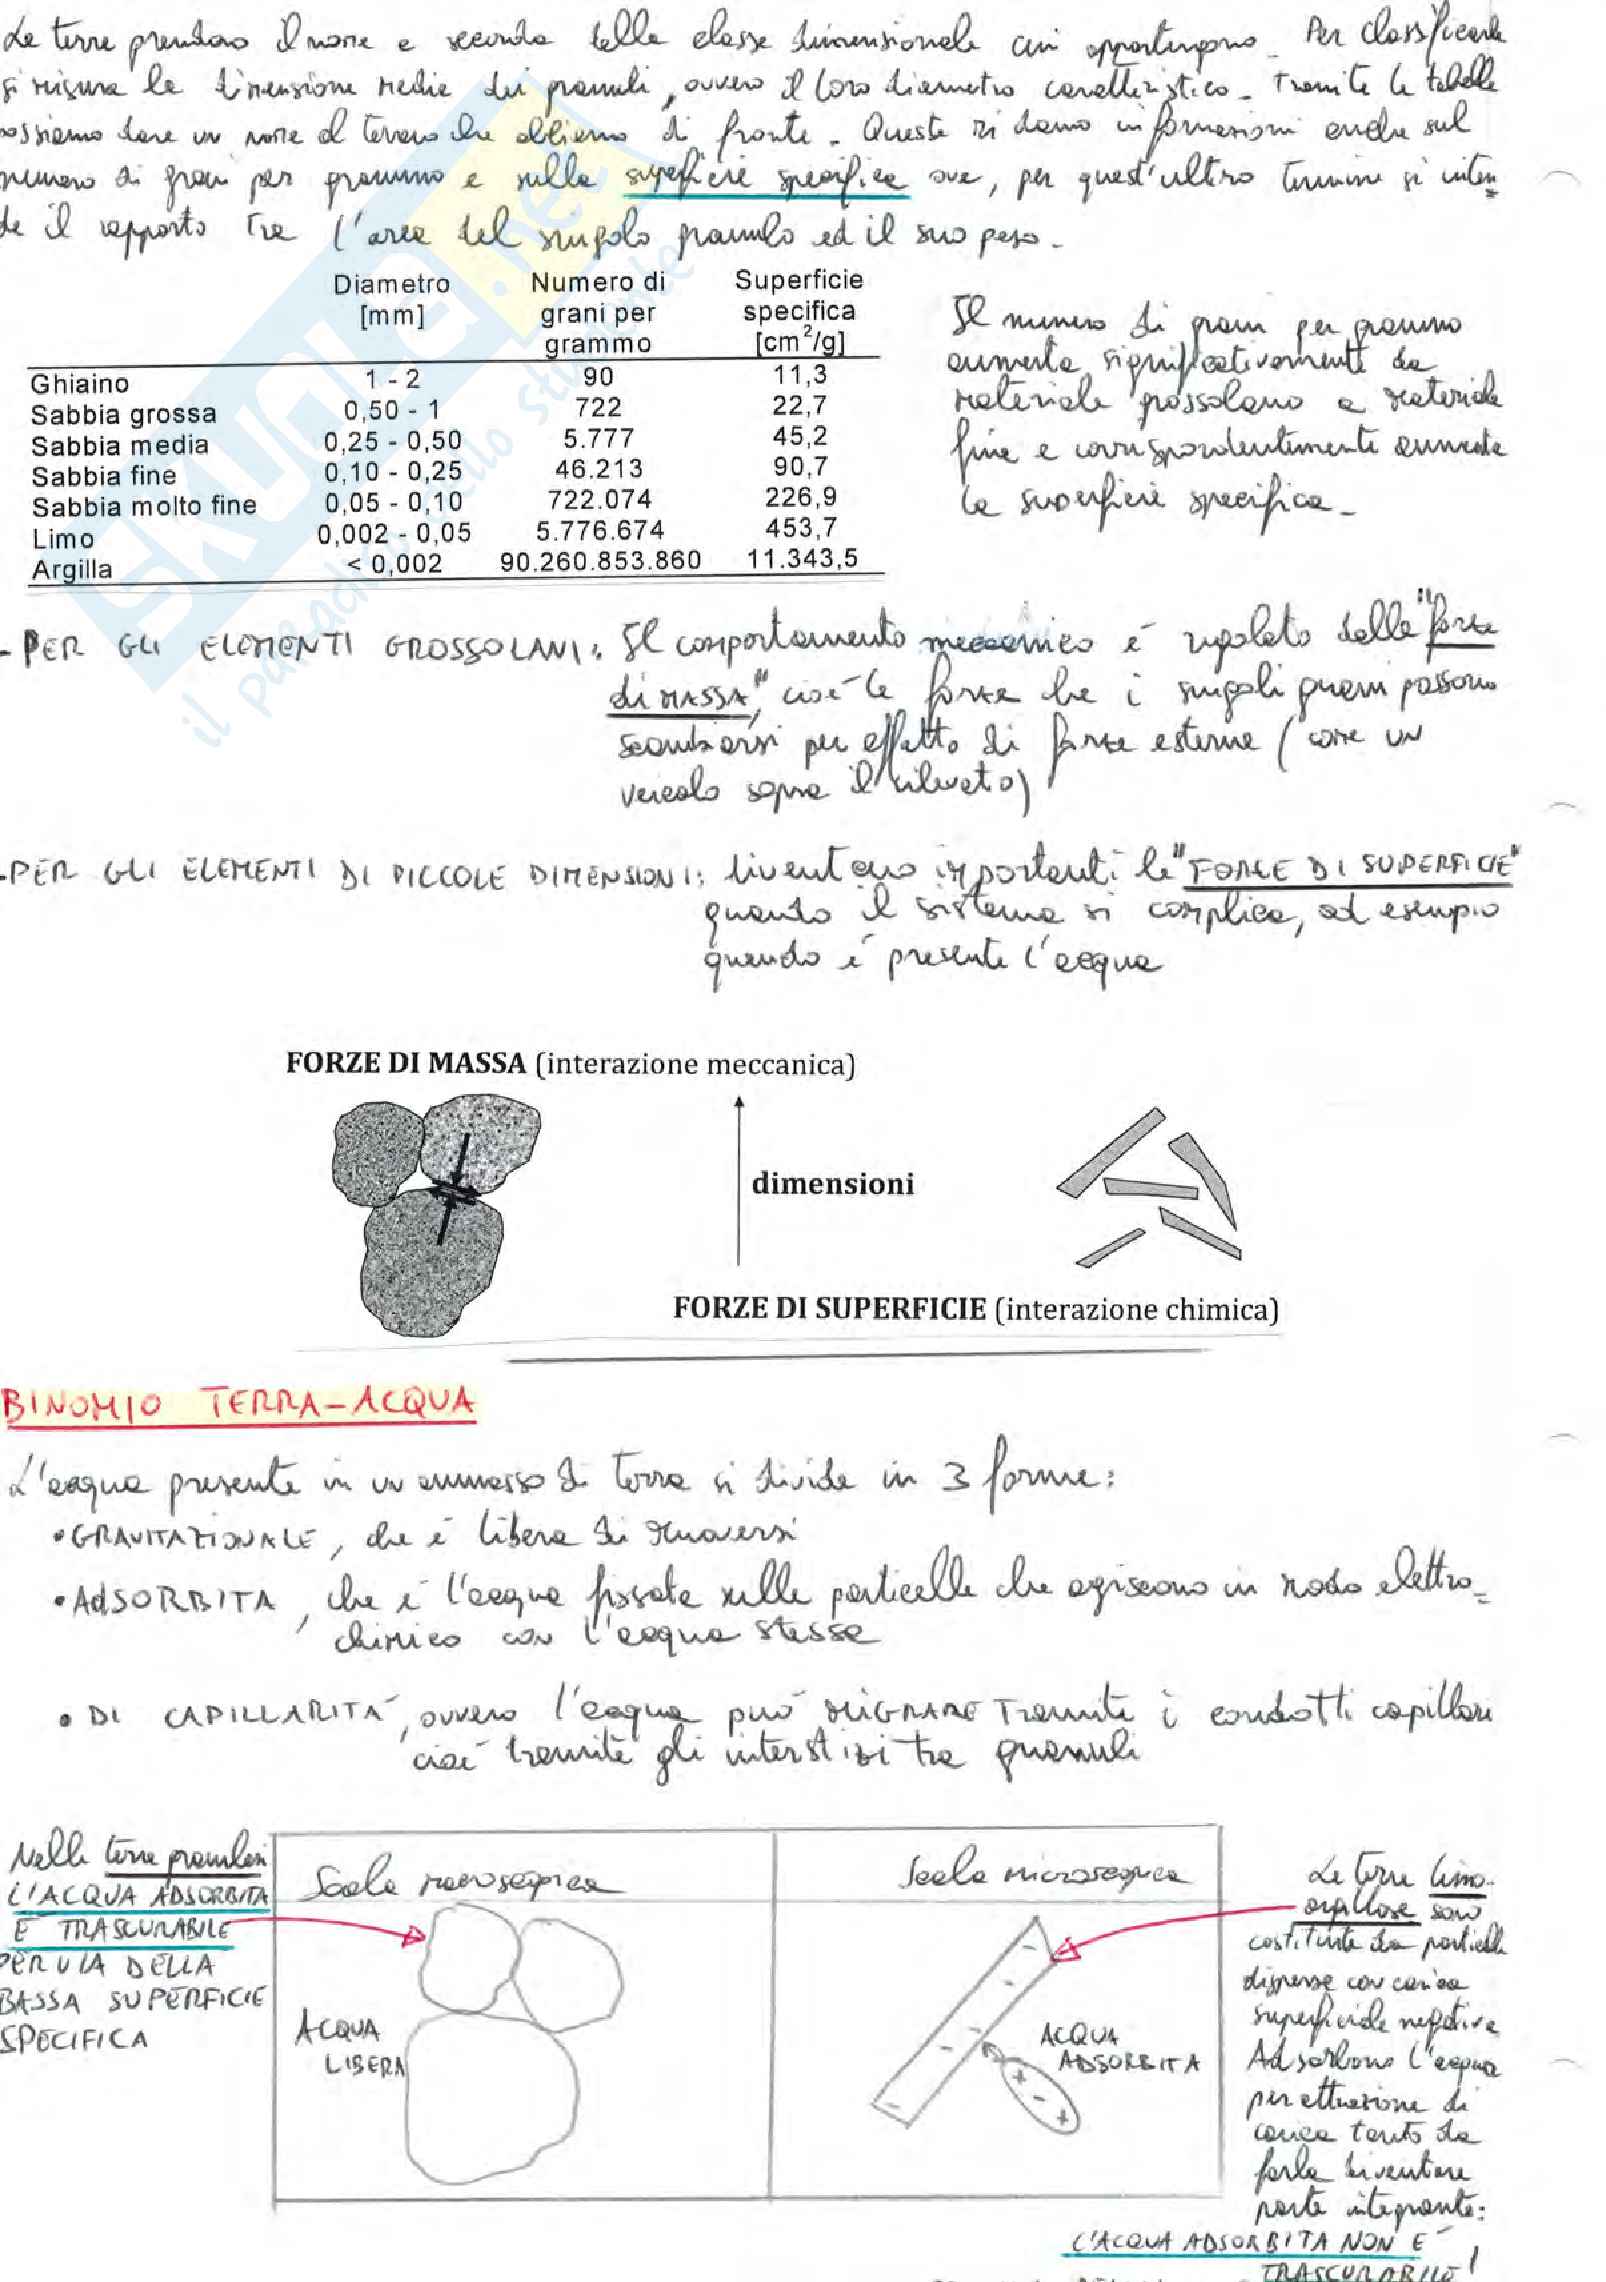 Le terre prendono il nome a seconda della classe dimensionale cui appartengono. Per classificarle
si misura la dimensione media dei granuli, ovvero il loro diametro caratteristico. Tramite le tabelle
possiamo dare un nome al terreno che abbiamo di fronte. Queste ci danno informazioni anche sul
numero di grani per grammo e sulla superficie specifica ove, per quest'ultimo termine si inten=
de il rapporto tra l'area del singolo granulo ed il suo peso.
Diametro [mm] Numero di grani per grammo Superficie specifica [cm²/g]
Ghiaino 1 - 2 90 11,3
Sabbia grossa 0,50 - 1 722 22,7
Sabbia media 0,25 - 0,50 5.777 45,2
Sabbia fine 0,10 - 0,25 46.213 90,7
Sabbia molto fine 0,05 - 0,10 722.074 226,9
Limo 0,002 - 0,05 5.776.674 453,7
Argilla < 0,002 90.260.853.860 11.343,5
Il numero di grani per grammo
aumenta significativamente da
materiale grossolano a materiale
fine e corrispondentemente aumenta
la superficie specifica.
SKUOLA.net
il paradiso dello studente
- PER GLI ELEMENTI GROSSOLANI: Il comportamento meccanico è regolato dalle "forze
di MASSA", cioè le forze che i singoli grani possono
scambiarsi per effetto di forze esterne (come un
veicolo sopra il rilevato)
- PER GLI ELEMENTI DI PICCOLE DIMENSIONI: diventano importanti le "FORZE DI SUPERFICIE"
quando il sistema si complica, ad esempio
quando è presente l'acqua
FORZE DI MASSA (interazione meccanica)
dimensioni
FORZE DI SUPERFICIE (interazione chimica)
BINOMIO TERRA-ACQUA
L'acqua presente in un ammasso di terra si divide in 3 forme:
• GRAVITAZIONALE, che è libera di muoversi
• AdSORBITA, che è l'acqua fissata sulle particelle che agiscono in modo elettro=
chimico con l'acqua stessa
• DI CAPILLARITÀ, ovvero l'acqua può MIGRARE Tramite i condotti capillari
cioè tramite gli interstizi tra granuli
Nelle terre granulari
L'ACQUA ADSORBITA
È TRASCURABILE
PER VIA DELLA
BASSA SUPERFICIE
SPECIFICA
Scala macroscopica
ACQUA
LIBERA
Scala microscopica
ACQUA
ADSORBITA
Le terre limo-
argillose sono
costituite da particelle
disperse con carica
superficiale negativa
Adsorbono l'acqua
per attrazione di
carica tanto da
farla diventare
parte integrante:
L'ACQUA ADSORBITA NON È
TRASCURABILE!